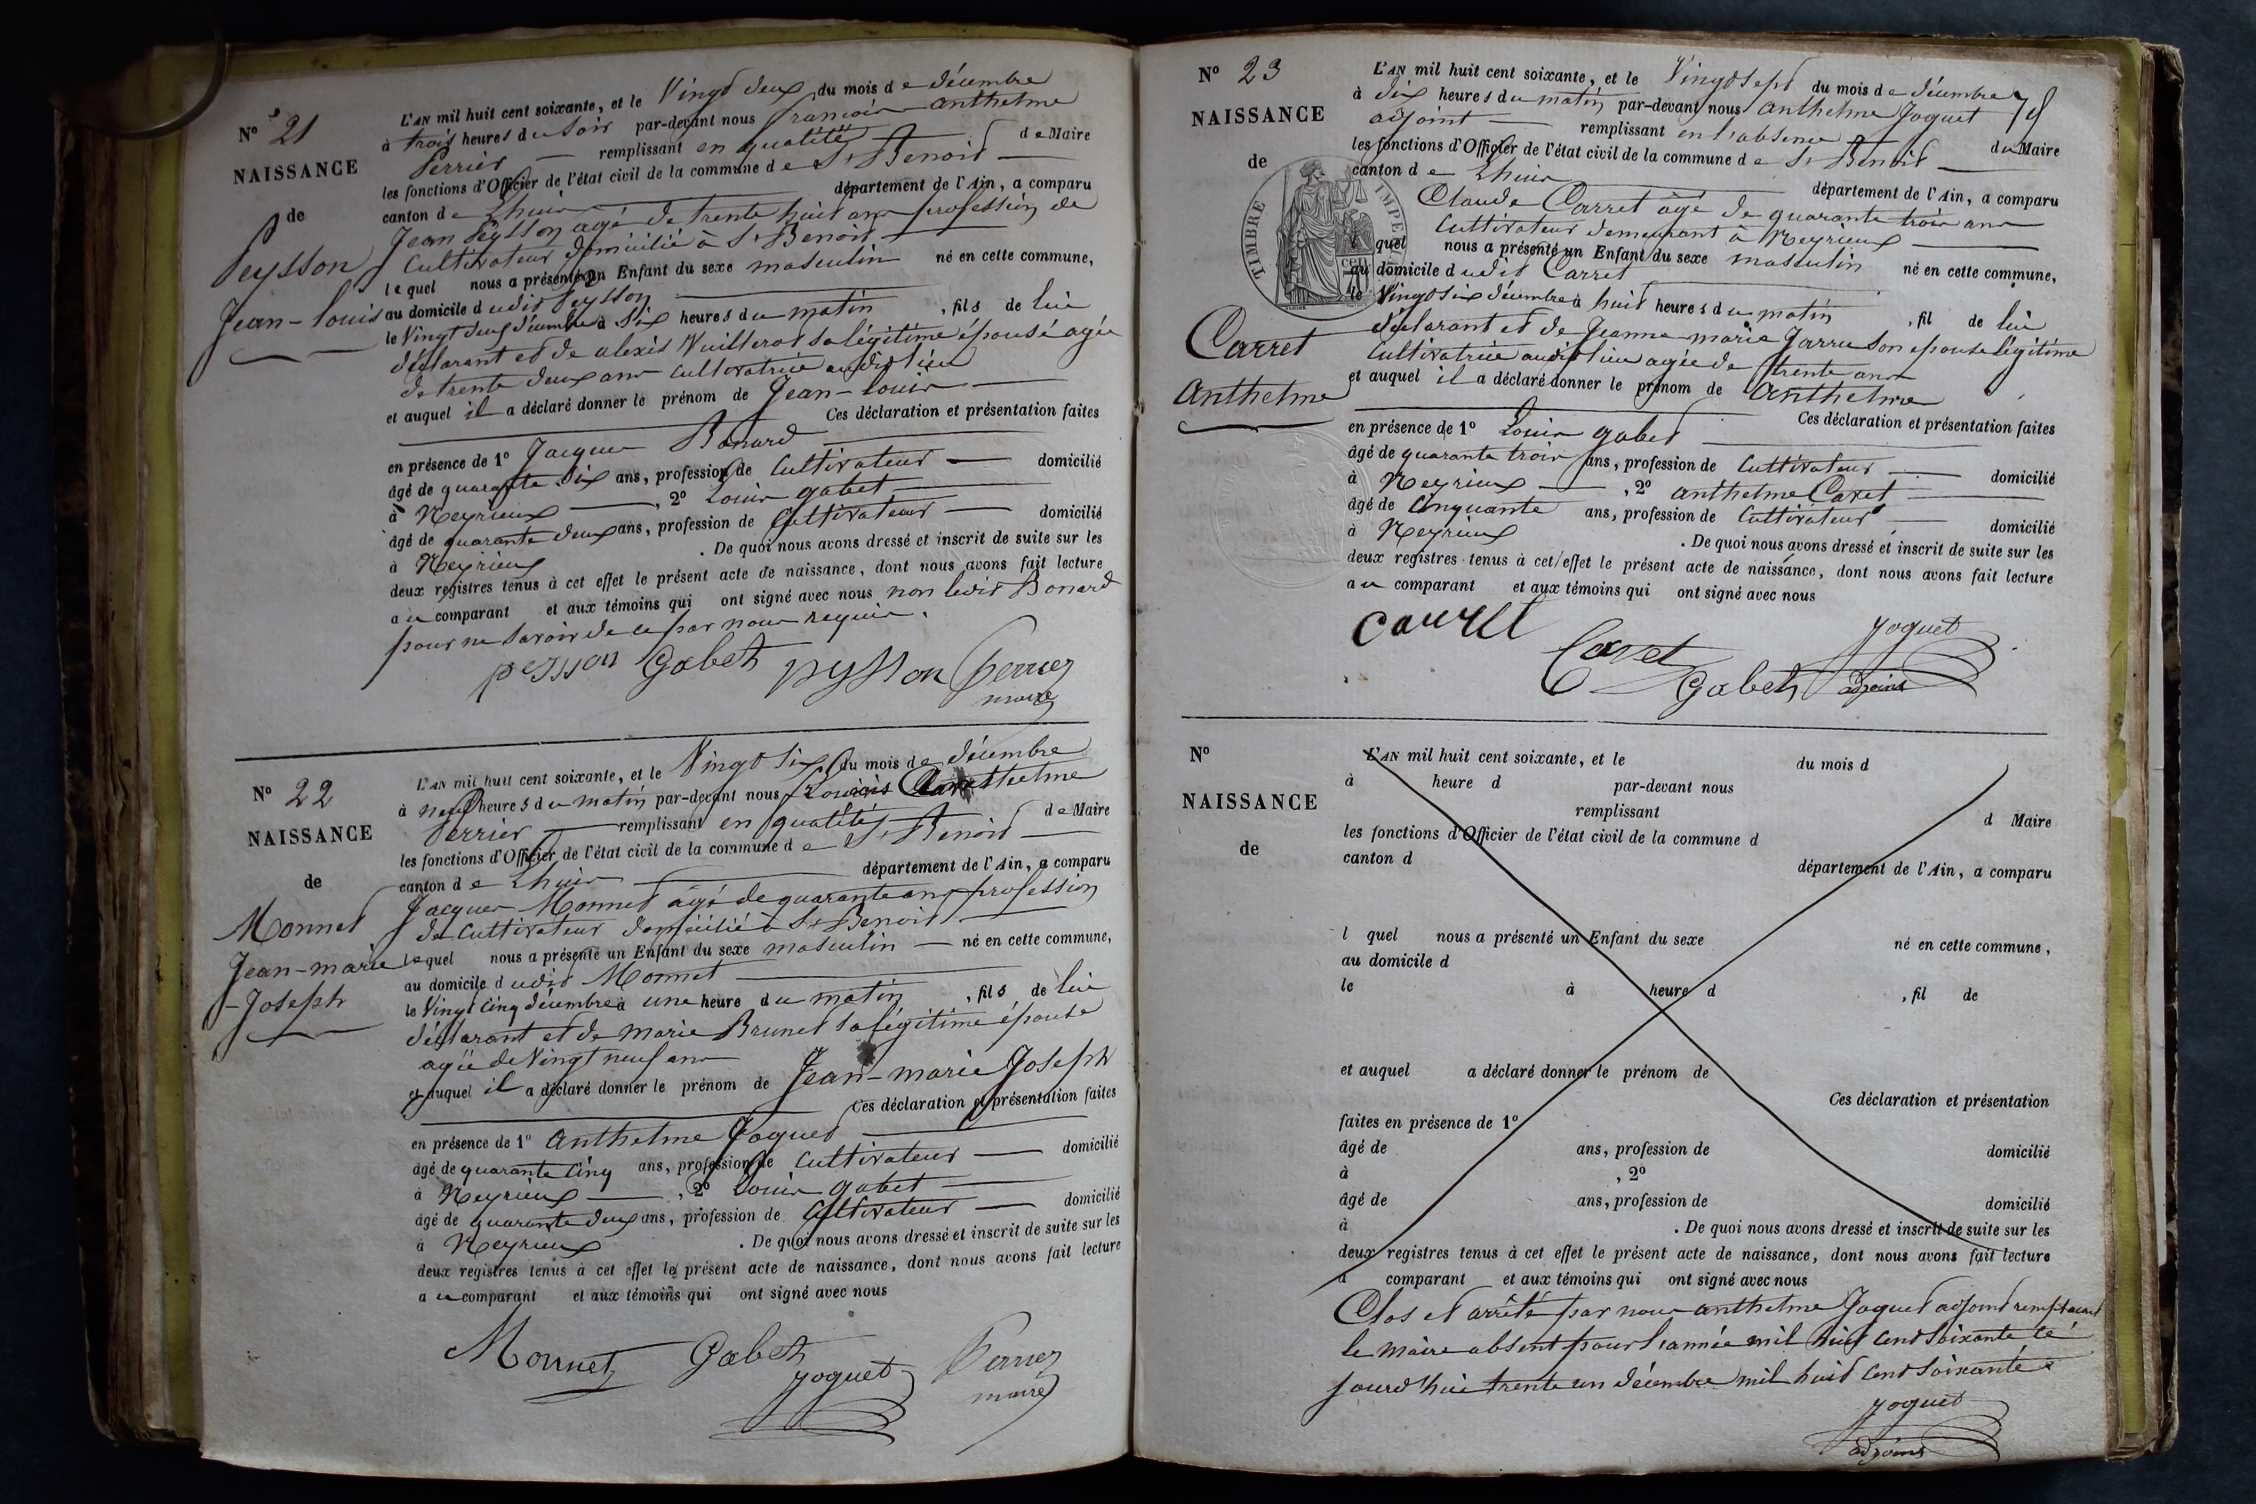 N° 21
NAISSANCE
de
Peysson
Jean-Louis
L'AN mil huit cent soixante, et le Vingt deux du mois de décembre
à trois heures du soir par-devant nous François anthelme
Perrier remplissant en qualité de Maire
les fonctions d'Officier de l'état civil de la commune de St Benoit
canton de Lhuis département de l'Ain, a comparu
Jean Peysson agé de trente huit ans profession de
Cultivateur domicilié à St Benoit
lequel nous a présenté un Enfant du sexe masculin né en cette commune,
au domicile dudit Peysson
le Vingt deux décembre à six heures du matin, fils de lui
déclarant et de alexis Vuillerot sa légitime épouse agée
de trente deux ans cultivatrice audit lieu
et auquel il a déclaré donner le prénom de Jean-Louis
Ces déclaration et présentation faites
en présence de 1° Jacques Bonard
âgé de quarante six ans, profession de Cultivateur domicilié
à Neyrieux, 2° Louis gabet
âgé de quarante deux ans, profession de Cultivateur domicilié
à Neyrieux. De quoi nous avons dressé et inscrit de suite sur les
deux registres tenus à cet effet le présent acte de naissance, dont nous avons fait lecture
au comparant et aux témoins qui ont signé avec nous non ledit Bonard
pour ne savoir de ce par nous requis.
pesson Gabet pysson Perrier
maire
N° 22
NAISSANCE
de
Monnet
Jean-marie
-Joseph
L'AN mil huit cent soixante, et le Vingt six du mois de décembre
à neuf heures du matin par-devant nous anthelme
Perrier remplissant en qualité de Maire
les fonctions d'Officier de l'état civil de la commune de St Benoit
canton de Lhuis département de l'Ain, a comparu
Jacques Monnet âgé de quarante ans profession
de Cultivateur domicilié à St Benoit
lequel nous a présenté un Enfant du sexe masculin né en cette commune,
au domicile dudit Monnet
le Vingt cinq décembre à une heure du matin, fils de lui
déclarant et de marie Brunet sa légitime épouse
agée de Vingt neuf ans
et auquel il a déclaré donner le prénom de Jean-marie Joseph
Ces déclaration et présentation faites
en présence de 1° anthelme Joguet
âgé de quarante cinq ans, profession de Cultivateur domicilié
à Neyrieux, 2° Louis gabet
âgé de quarante deux ans, profession de Cultivateur domicilié
à Neyrieux. De quoi nous avons dressé et inscrit de suite sur les
deux registres tenus à cet effet le présent acte de naissance, dont nous avons fait lecture
au comparant et aux témoins qui ont signé avec nous
Monnet Gabet joguet Perrier
maire
N° 23
NAISSANCE
de
TIMBRE IMPE
Carret
Anthelme
L'AN mil huit cent soixante, et le Vingt sept du mois de décembre
à dix heures du matin par-devant nous anthelme Joguet
adjoint remplissant en l'absence du Maire
les fonctions d'Officier de l'état civil de la commune de St Benoit
canton de Lhuis département de l'Ain, a comparu
Claude Carret âgé de quarante trois ans
Cultivateur demeurant à Neyrieux
quel nous a présenté un Enfant du sexe masculin né en cette commune,
au domicile dudit Carret
le Vingt six décembre à huit heures du matin, fil de lui
déclarant et de Jeanne marie Jarru son epouse légitime
Cultivatrice audit lieu agée de trente ans
et auquel il a déclaré donner le prénom de Anthelme
Ces déclaration et présentation faites
en présence de 1° Louis gabet
âgé de quarante trois ans, profession de Cultivateur domicilié
à Neyrieux, 2° anthelme Caret
âgé de Cinquante ans, profession de Cultivateur domicilié
à Neyrieux. De quoi nous avons dressé et inscrit de suite sur les
deux registres tenus à cet effet le présent acte de naissance, dont nous avons fait lecture
au comparant et aux témoins qui ont signé avec nous
Caret Gabet joguet
adjoint
N°
NAISSANCE
de
L'AN mil huit cent soixante, et le du mois d
à heure d par-devant nous
remplissant d Maire
les fonctions d'Officier de l'état civil de la commune d
canton d département de l'Ain, a comparu
l quel nous a présenté un Enfant du sexe né en cette commune,
au domicile d
le à heure d, fil de
et auquel a déclaré donner le prénom de
Ces déclaration et présentation
faites en présence de 1°
âgé de ans, profession de domicilié
à, 2°
âgé de ans, profession de domicilié
à. De quoi nous avons dressé et inscrit de suite sur les
deux registres tenus à cet effet le présent acte de naissance, dont nous avons fait lecture
a comparant et aux témoins qui ont signé avec nous
Clos et arrêté par nous anthelme Joguet adjoint remplacant
le maire absent pour l'année mil huit cent soixante ce
jourd'hui trente un décembre mil huit cent soixante
joguet
adjoint